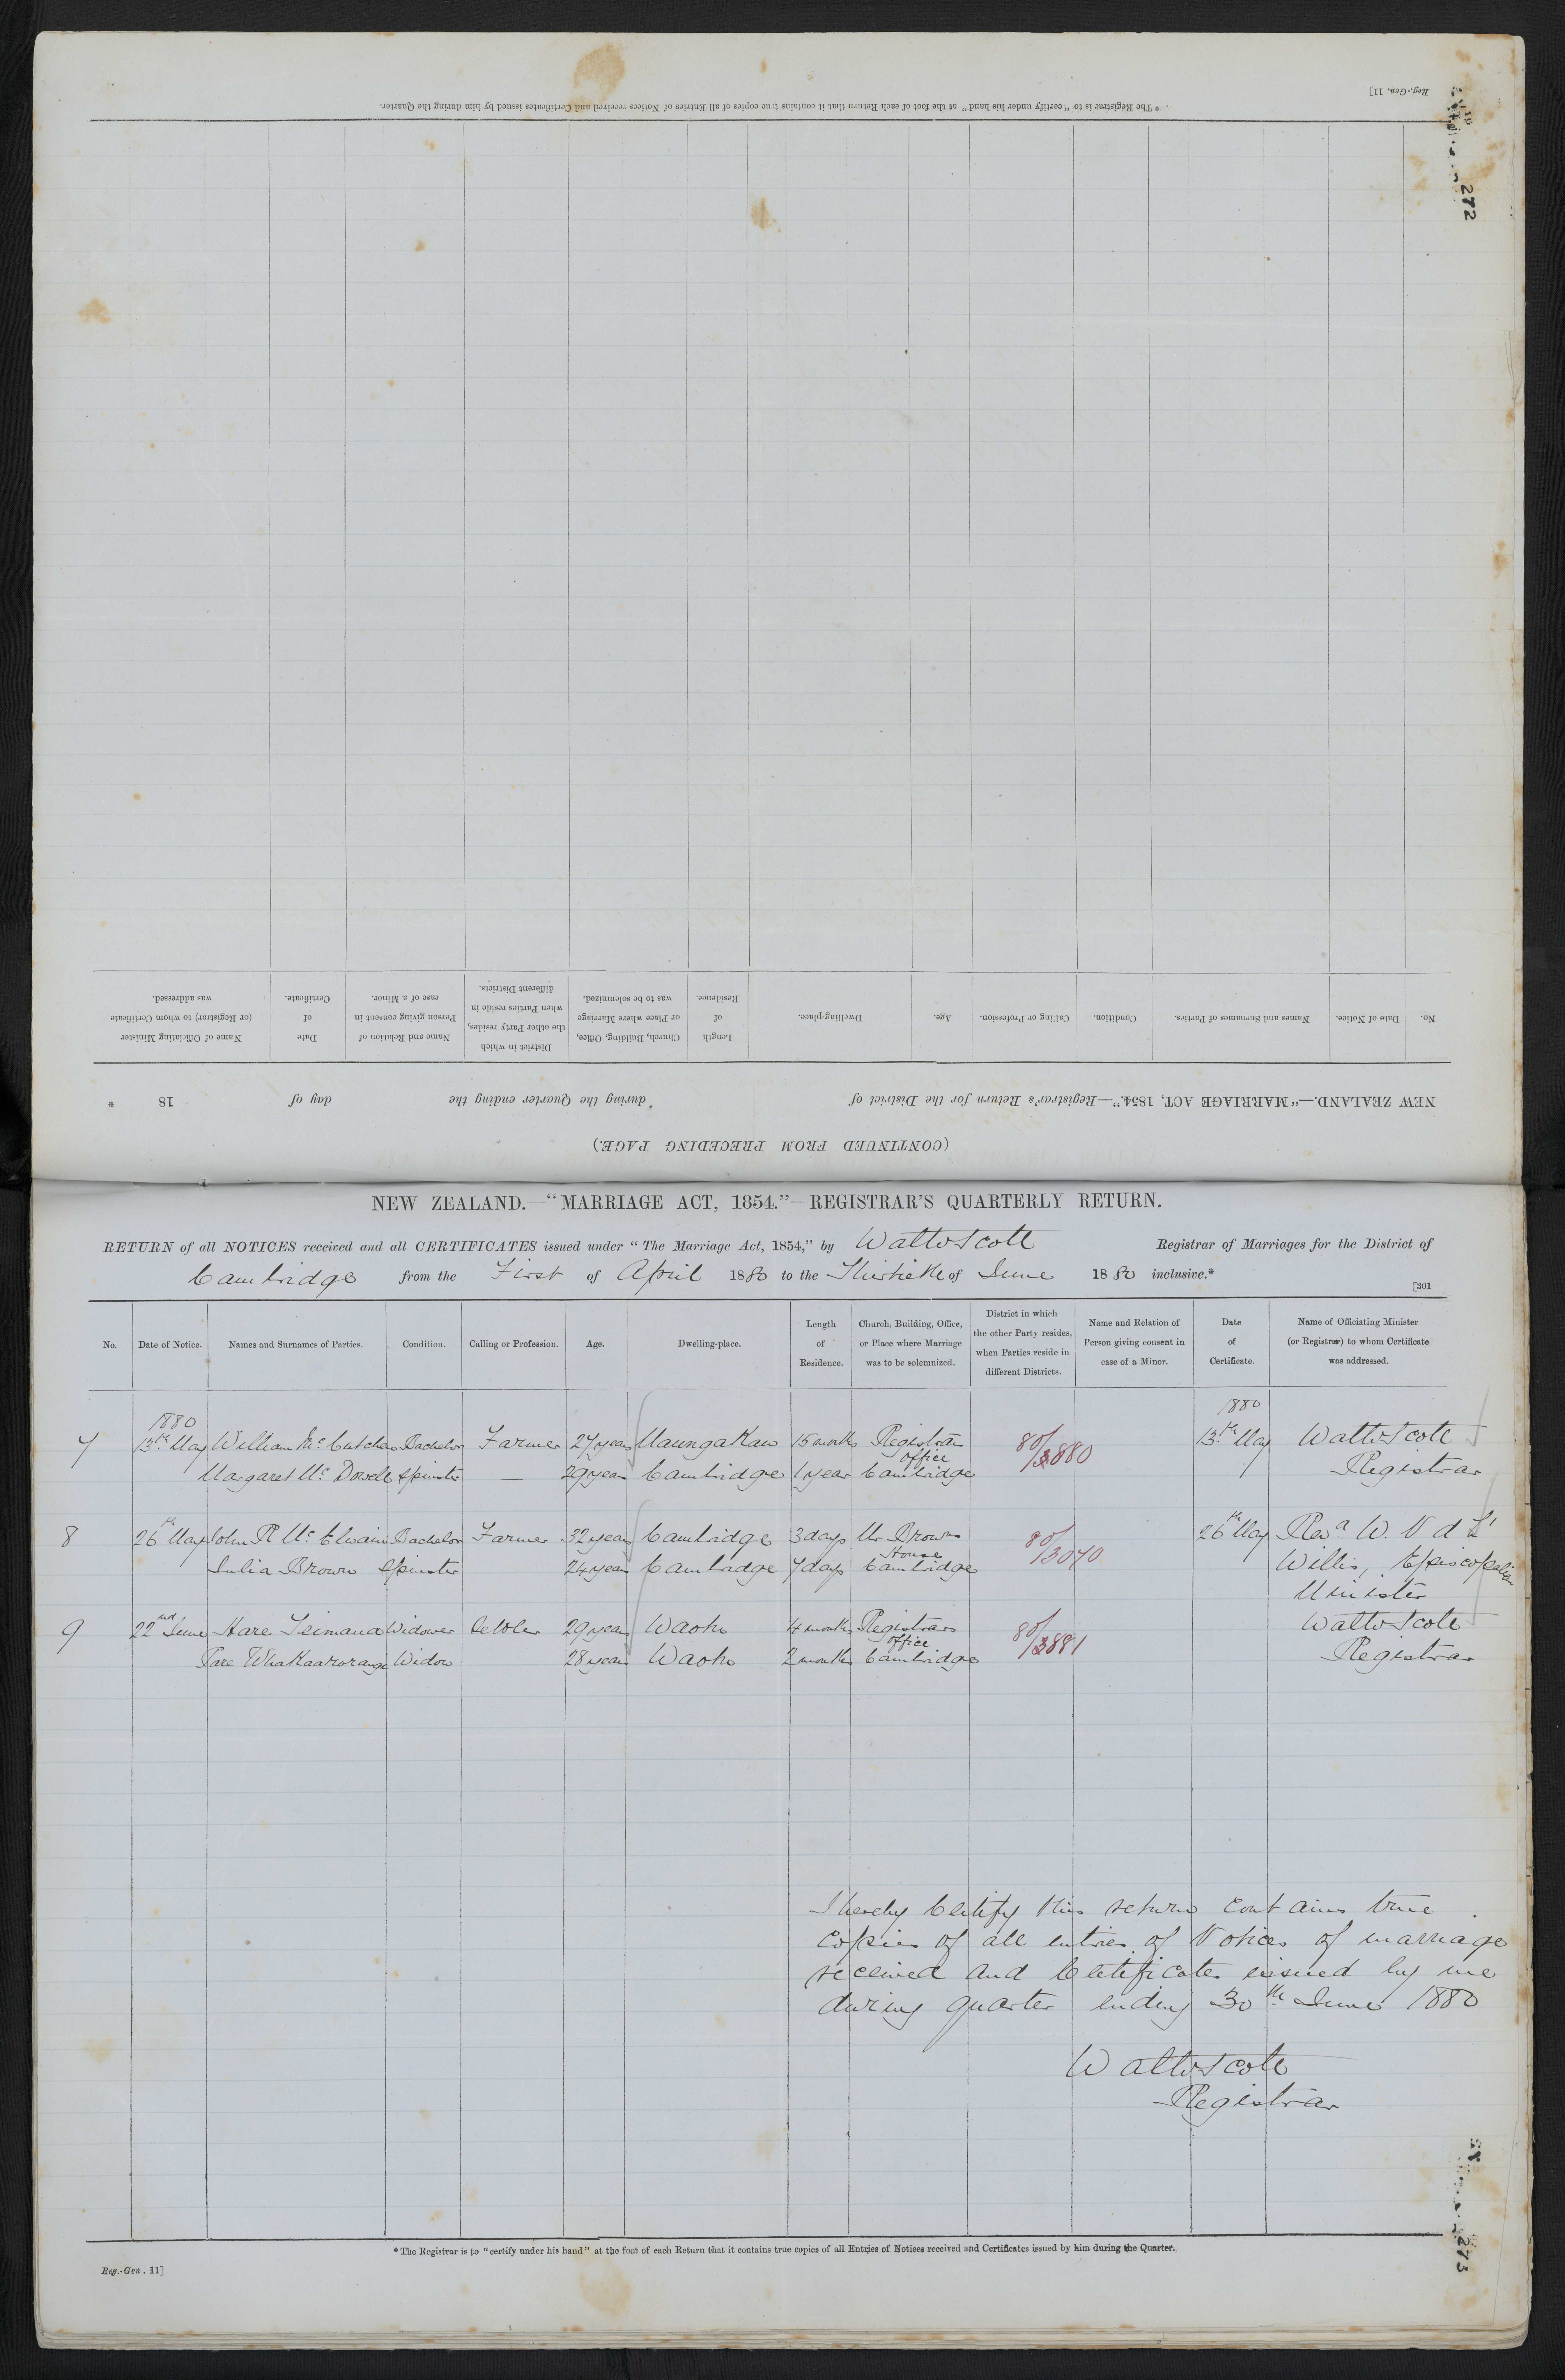 Reg.-Gen. 11]
* The Registrar is to "certify under his hand" at the foot of each Return that it contains true copies of all Entries of Notices received and Certificates issued by him during the Quarter.
272
(CONTINUED FROM PRECEDING PAGE.)
NEW ZEALAND.—"MARRIAGE ACT, 1854."—Registrar's Return for the District of during the Quarter ending the day of 18 *
No. Date of Notice. Names and Surnames of Parties. Condition. Calling or Profession. Age. Dwelling-place. Length of Residence. Church, Building, Office, or Place where Marriage was to be solemnized. District in which the other Party resides, when Parties reside in different Districts. Name and Relation of Person giving consent in case of a Minor. Date of Certificate. Name of Officiating Minister (or Registrar) to whom Certificate was addressed.
NEW ZEALAND.—"MARRIAGE ACT, 1854."—REGISTRAR'S QUARTERLY RETURN.
RETURN of all NOTICES received and all CERTIFICATES issued under "The Marriage Act, 1854," by Walter Scott Registrar of Marriages for the District of
Cambridge from the First of April 1880 to the Thirtieth of June 1880 inclusive.*
[301
No. Date of Notice. Names and Surnames of Parties. Condition. Calling or Profession. Age. Dwelling-place. Length of Residence. Church, Building, Office, or Place where Marriage was to be solemnized. District in which the other Party resides, when Parties reside in different Districts. Name and Relation of Person giving consent in case of a Minor. Date of Certificate. Name of Officiating Minister (or Registrar) to whom Certificate was addressed.
1880 1880
7 13th May William McCutchen Bachelor Farmer 27 years Maungakaw 15 months Registrars office 80/3880 13th May Walter Scott
Margaret McDowell Spinster — 29 years Cambridge 1 year Cambridge Registrar
8 26th May John R McElwain Bachelor Farmer 32 years Cambridge 3 days Mr Browns House 80/3040 26th May Revd W. N d L
Julia Brown Spinster 24 years Cambridge 7 days Cambridge Willis, Episcopalian
Minister
9 22nd June Hare Teimana Widower Settler 29 years Waotu 4 months Registrars office 80/3881 Walter Scott
Pare Whakaarorangi Widow 28 years Waotu 2 months Cambridge Registrar
I hereby Certify this return contains true
Copies of all entries of Notices of marriage
received and Certificates issued by me
during quarter ending 30th June 1880
Walter Scott
Registrar
* The Registrar is to "certify under his hand" at the foot of each Return that it contains true copies of all Entries of Notices received and Certificates issued by him during the Quarter.
Reg.-Gen. 11]
273